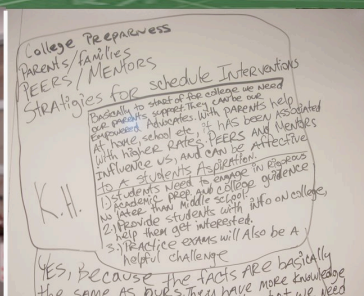 College Preparness
PARENTS/families
PEERS / MENTORS
Stratigies for schedule Interventions
Basically to start of for college we need
our parents, support. They can be our
empowered Advocates. With PARENTS help
At home, school etc, it has been associated
with higher Rates, PEERS AND Mentors
Influence us, and can be Affective
to A students Aspiration.
1) Students Need to engage in Rigorous
academic prep. and college guidence
no later than middle school.
2) Provide students with info on college,
help them get interested.
3.) PRACTICE EXAMS will Also be A
helpful challenge
K.H.
YES, Because the facts ARE basically
the same AS OURS. They have more knowledge
we need